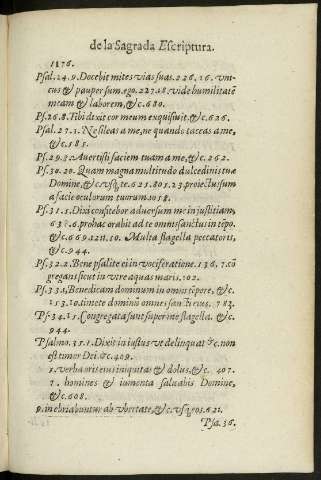 de la Sagrada Escriptura.
1176.
Psal.24.9. Docebit mites vias suas. 226. 16. vni-
cus & pauper sum. ego. 227. 18. vide humilitatẽ
meam & laborem, &c. 680.
Ps.26.8. Tibi dixit cor meum exquisiuit, &c. 626.
Psal.27.1. Ne sileas a me, ne quando taceas a me,
&c. 185.
Ps.29. Auertisti faciem tuam a me, &c. 262.
Ps.30.20. Quam magna multitudo dulcedinis tuæ
Domine, &c. vsq; te. 621. 801. 23. proiectus sum
a facie oculorum tuorum. 1058.
Ps.31.5. Dixi confitebor aduersum me iniustitiam,
6. pro hac orabit ad te omnis sanctus in tẽpo.
&c. 669. 10. Multa flagella peccatoris,
&c. 944.
Ps.32.2. Bene psallite ei in vociferatione. 136. 7. cõ
gregans sicut in vtre aquas maris. 702.
Ps.33. Benedicam dominum in omni tẽpere, &c.
153. 10. timete dominũ omnes sancti eius. 783.
Ps.34.15. Congregata sunt super me flagella. &c.
944.
Psalmo.35.1. Dixit iniustus vt delinquat &c. non
est timor Dei. &c. 409.
verba oris eius iniquitas & dolus, &c. 407.
7. homines & iumenta saluabis Domine,
&c. 608.
9. inebriabuntur ab vbertate, &c. vsq; 621.
Psa.36.